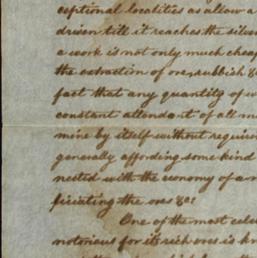 ceptional localities as allow a
driven till it reaches the silver
a work is not only much cheap
the extraction of ores, rubbish &c
fact that any quantity of w
constant attendant of all m
mine by itself without requir
generally affording some kind
nected with the economy of a m
ficiating the ores &c?
One of the most cele
notorious for its rich ores is kn